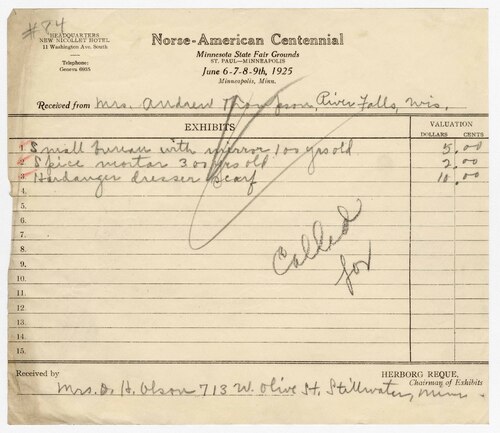 #84
HEADQUARTERS
NEW NICOLLET HOTEL
11 Washington Ave. South
Telephone:
Geneva 6835
Norse-American Centennial
Minnesota State Fair Grounds
ST. PAUL—MINNEAPOLIS
June 6-7-8-9th, 1925
Minneapolis, Minn.
Received from Mrs. Andrew Thompson, River Falls, Wis.
EXHIBITS
VALUATION
DOLLARS CENTS
1. Small bureau with mirror 100 yrs old 5.00
2. Spice mortar 300 yrs old 2.00
3. Hardanger dresser scarf 10.00
4.
5.
6.
7.
8.
9.
10.
11.
12.
13.
14.
15.
Called
for
Received by
HERBORG REQUE,
Chairman of Exhibits
Mrs. D. H. Olson 713 W. Olive St. Stillwater, Minn